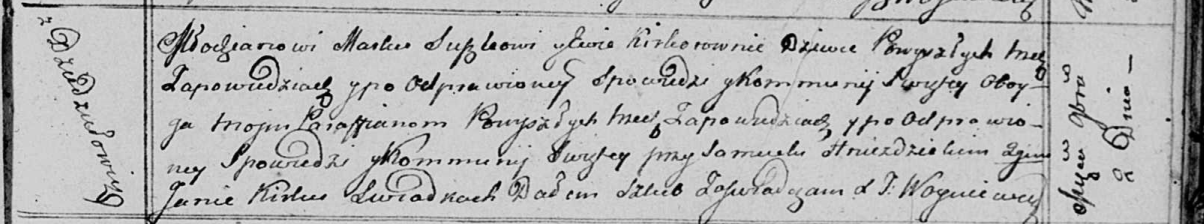 z Dziedziłowicz
Młodzianowi Markus Suszkowi y Ewie Kirkorownie Dziewce Powyszłych trzech
Zapowiedziach ypo Odprawioney Spowiedzi y Kommunij Swętey Oboy-
ga moim Paraffianom Powyszłych trzech Zapowiedziach, ypo Odprawio-
ney Spowiedzi y Kommunij Swętey przy Samuelu Hniezdzickim
Janie Kirkus Swiadkach Dałem Szlub Zaswiadczam
Dnia —